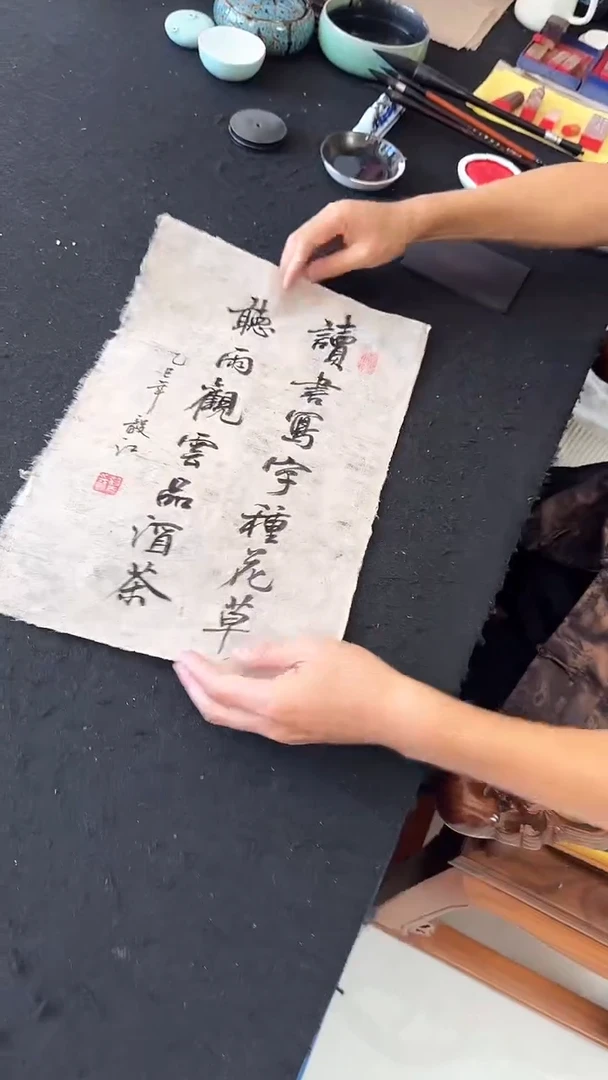 讀書寫字種花草
聽雨觀雲品酒茶
乙巳年